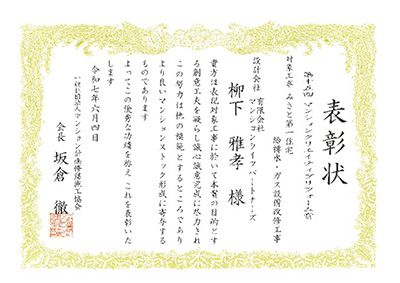 表彰状
第十五回 マンションクリエイティブリフォーム賞
対象工事 みさと第一住宅
給排水・ガス設備改修工事
設計会社 有限会社
マンションライフパートナーズ
柳下 雅孝 様
貴方は表記対象工事に於いて本賞の目的とす
る創意工夫を凝らし誠心誠意完成に尽力され
この努力は他の模範とするところであり
より良いマンションストック形成に寄与する
ものであります
よってこの優秀な功績を称え これを表彰いた
します
令和七年六月四日
一般社団法人マンション計画修繕施工協会
会長 坂倉 徹